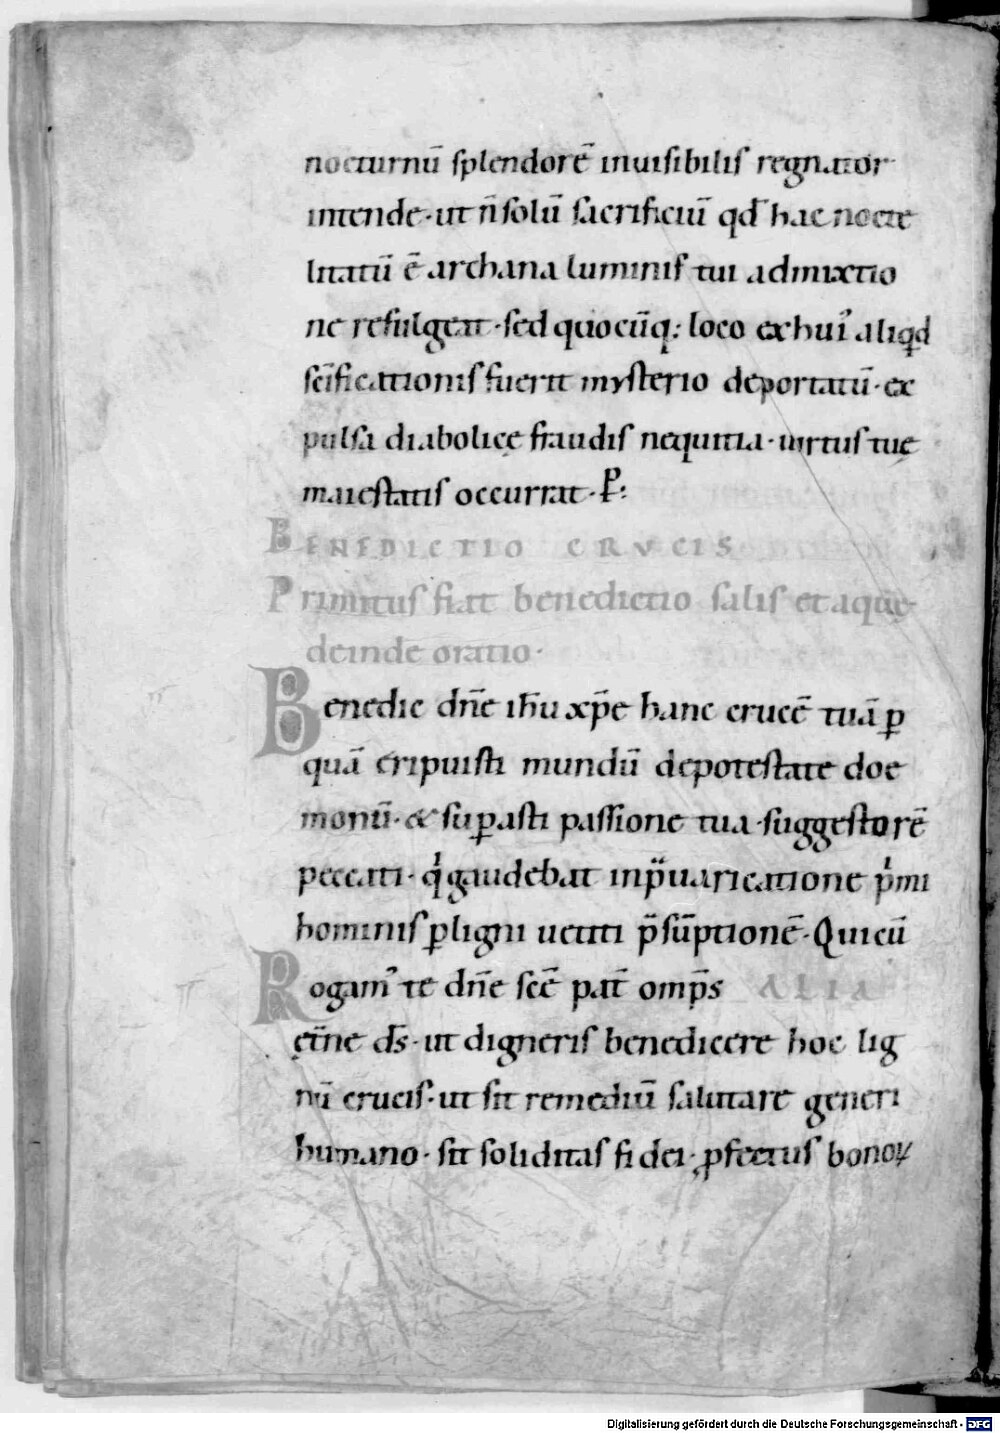 nocturnū splendorē inuisibilis regnator
intende · ut n̄ solū sacrificiū qđ hac nocte
litatū ē archana luminis tui admixtio
ne refulgeat · sed quocūq; loco ex hui᾿ aliqđ
sc̄ificationis fuerit mysterio deportatū · ex
pulsa diabolicę fraudis nequitia · uirtus tuę
maiestatis occurrat · P̲:
BENEDICTIO CRVCIS
Primitus fiat benedictio salis et aquę
deinde oratio ·
Benedic dn̄e ih̄u xp̄e hanc crucē tuā ꝑ
quā eripuisti mundū de potestate doe
monū · & suꝑasti passione tua · suggestorē
peccati · q̇ gaudebat in p̄uaricatione p̍mi
hominis ꝑ ligni uetiti p̄sūptionē · Qui cū
Rogam᾿ te dn̄e sc̄e pat̄ omp̄s ALIA
ęt̄ne d̄s · ut digneris benedicere hoc lig
nū crucis · ut sit remediū salutare generi
humano · sit soliditas fidei · ꝓfectus bonoꝝ
Digitalisierung gefördert durch die Deutsche Forschungsgemeinschaft - DFG